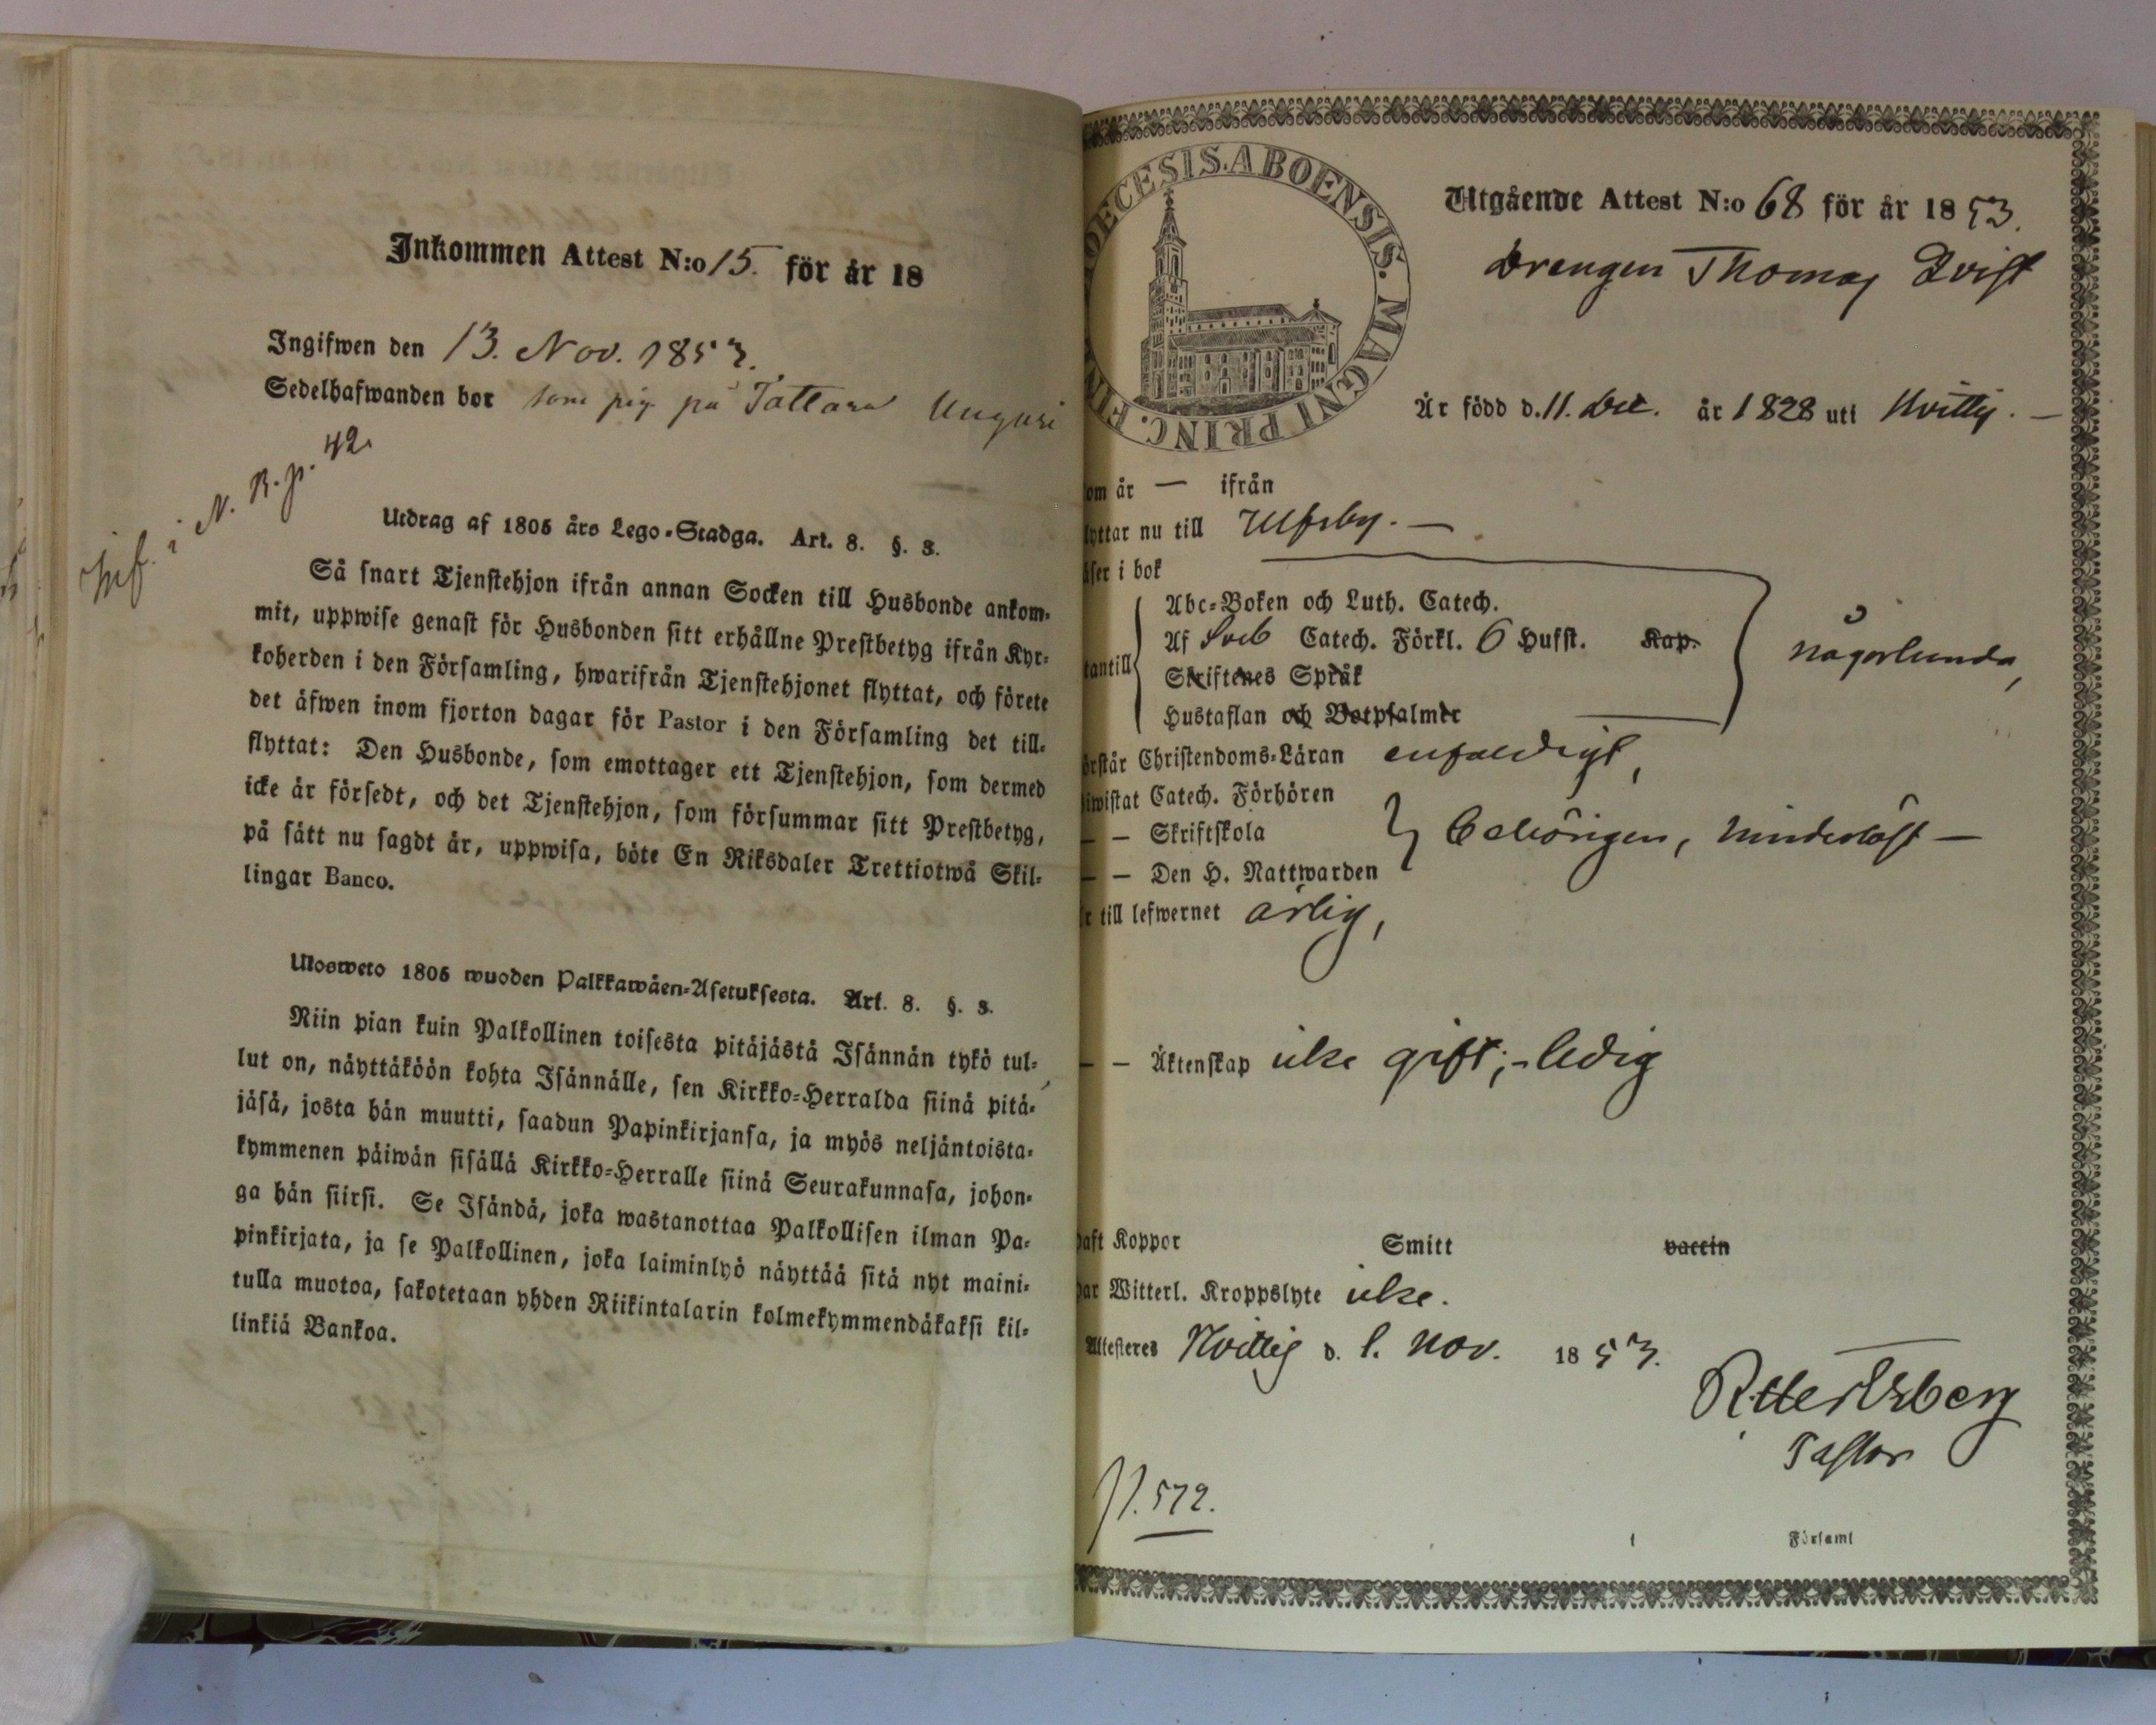 Inkommen Attest N:o 15. för år 18
Ingifwen den 13. Nov. 1853.
Sedelhafwanden bor som pig på Tattara
i N. B. p. 42.
Utdrag af 1805 års Lego-Stadga. Art. 8. §. 3.
Så snart Tjenstehjon ifrån annan Socken till Husbonde ankom-
mit, uppwise genast för Husbonden sitt erhållne Prestbetyg ifrån Kyr-
koherden i den Församling, hwarifrån Tjenstehjonet flyttat, och förete
det äfwen inom fjorton dagar för Pastor i den Församling det till-
flyttat: Den Husbonde, som emottager ett Tjenstehjon, som dermed
icke är försedt, och det Tjenstehjon, som försummar sitt Prestbetyg,
på sätt nu sagdt är, uppwisa, böte En Riksdaler Trettiotwå Skil-
lingar Banco.
Ulosweto 1805 wuoden Palkkawäen-Asetuksesta. Art. 8. §. 3.
Niin pian kuin Palkollinen toisesta pitäjästä Isännän tykö tul-
lut on, näyttäköön kohta Isännälle, sen Kirkko-Herralda siinä pitä-
jäsä, josta hän muutti, saadun Papinkirjansa, ja myös neljäntoista-
kymmenen päiwän sisällä Kirkko-Herralle siinä Seurakunnasa, johon-
ga hän siirsi. Se Isändä, joka wastanottaa Palkollisen ilman Pa-
pinkirjata, ja se Palkollinen, joka laiminlyö näyttää sitä nyt maini-
tulla muotoa, sakotetaan yhden Riikintalarin kolmekymmendäkaksi kil-
linkiä Bankoa.
OECESIS. ABOENSIS. MAGNI PRINC. FIN
Utgående Attest N:o 68 för år 1853.
Drengen Thomas Qvist
Är född d. 11. Dec. år 1828 uti Hvittis. —
om år — ifrån
lyttar nu till Ulfsby. —
äser i bok
Abc-Boken och Luth. Catech.
Af Sveb Catech. Förkl. 6 Hufst. Kap.
tantill Skriftenes Språk
Hustaflan och Botpsalmer
någorlunda,
örstår Christendoms-Läran enfaldigt,
iwistat Catech. Förhören
— — Skriftskola
behörigen, hinderlöst —
— — Den H. Nattwarden
r till lefwernet ärlig,
— — Äktenskap icke gift; - ledig
haft Koppor Smitt vaccin
har Witterl. Kroppslyte icke.
Attesteres Hvittis d. 1. Nov. 1853.
Pastor
p. 572.
Församl